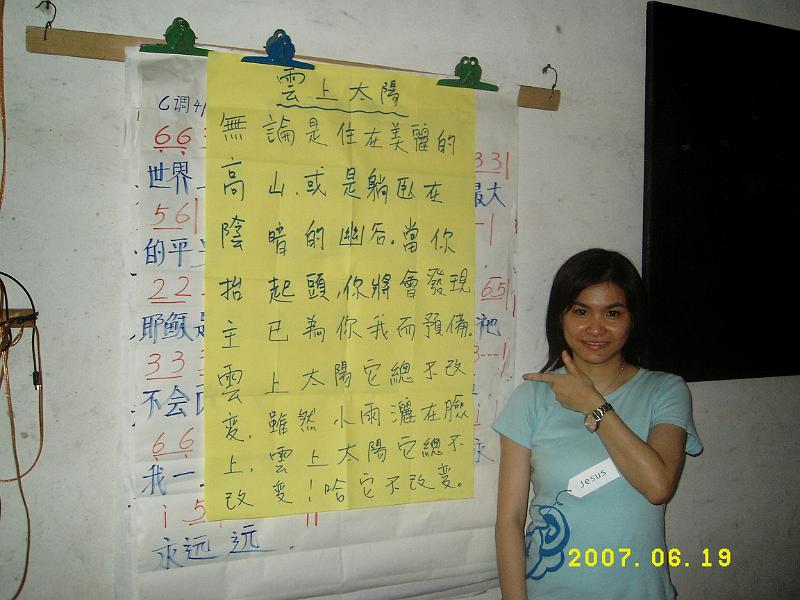 雲上太陽
無論是住在美麗的
高山，或是躺臥在
陰暗的幽谷，當你
抬起頭，你將會發現
主已為你我而預備。
雲上太陽它總不改
變，雖然小雨灑在臉
上，雲上太陽它總不
改變！哈它不改變。
G调4/
66
331
世界
最大
561
-1
的平
22
651
耶稣是
祂
33
3--1
不会
66
i
我一
永
i 5
永远 远.
Jesus
2007.06.19